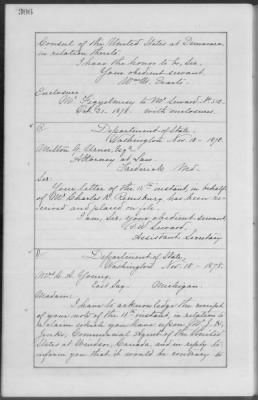 306
Consul of the United States at Demerara
in relation thereto.
I have the honor to be, Sir,
Your obedient servant
Wm. M. Evarts.
Enclosure.
Mr. Figyelmesy to Mr. Seward No. 312.
Oct. 21. 1878. with enclosures.
Department of State.
Washington Nov. 18 - 1878.
Milton G. Urner Esqre.
Attorney at Law
Frederick Md.
Sir:
Your letter of the 11th instant in behalf
of Mr Charles R. Remsburg has been re-
ceived and placed on file.
I am, Sir, your obedient servant
F. W. Seward.
Assistant Secretary
Department of State,
Washington Nov. 18 - 1878.
Young.
East Michigan.
Madam:
I have to acknowledge the receipt
of your note of the 11th instant in relation to
a claim which you have upon J. H.
Jenks, Commercial Agent of the United
States at Windsor, Canada, and in reply to
inform you that it would be contrary to